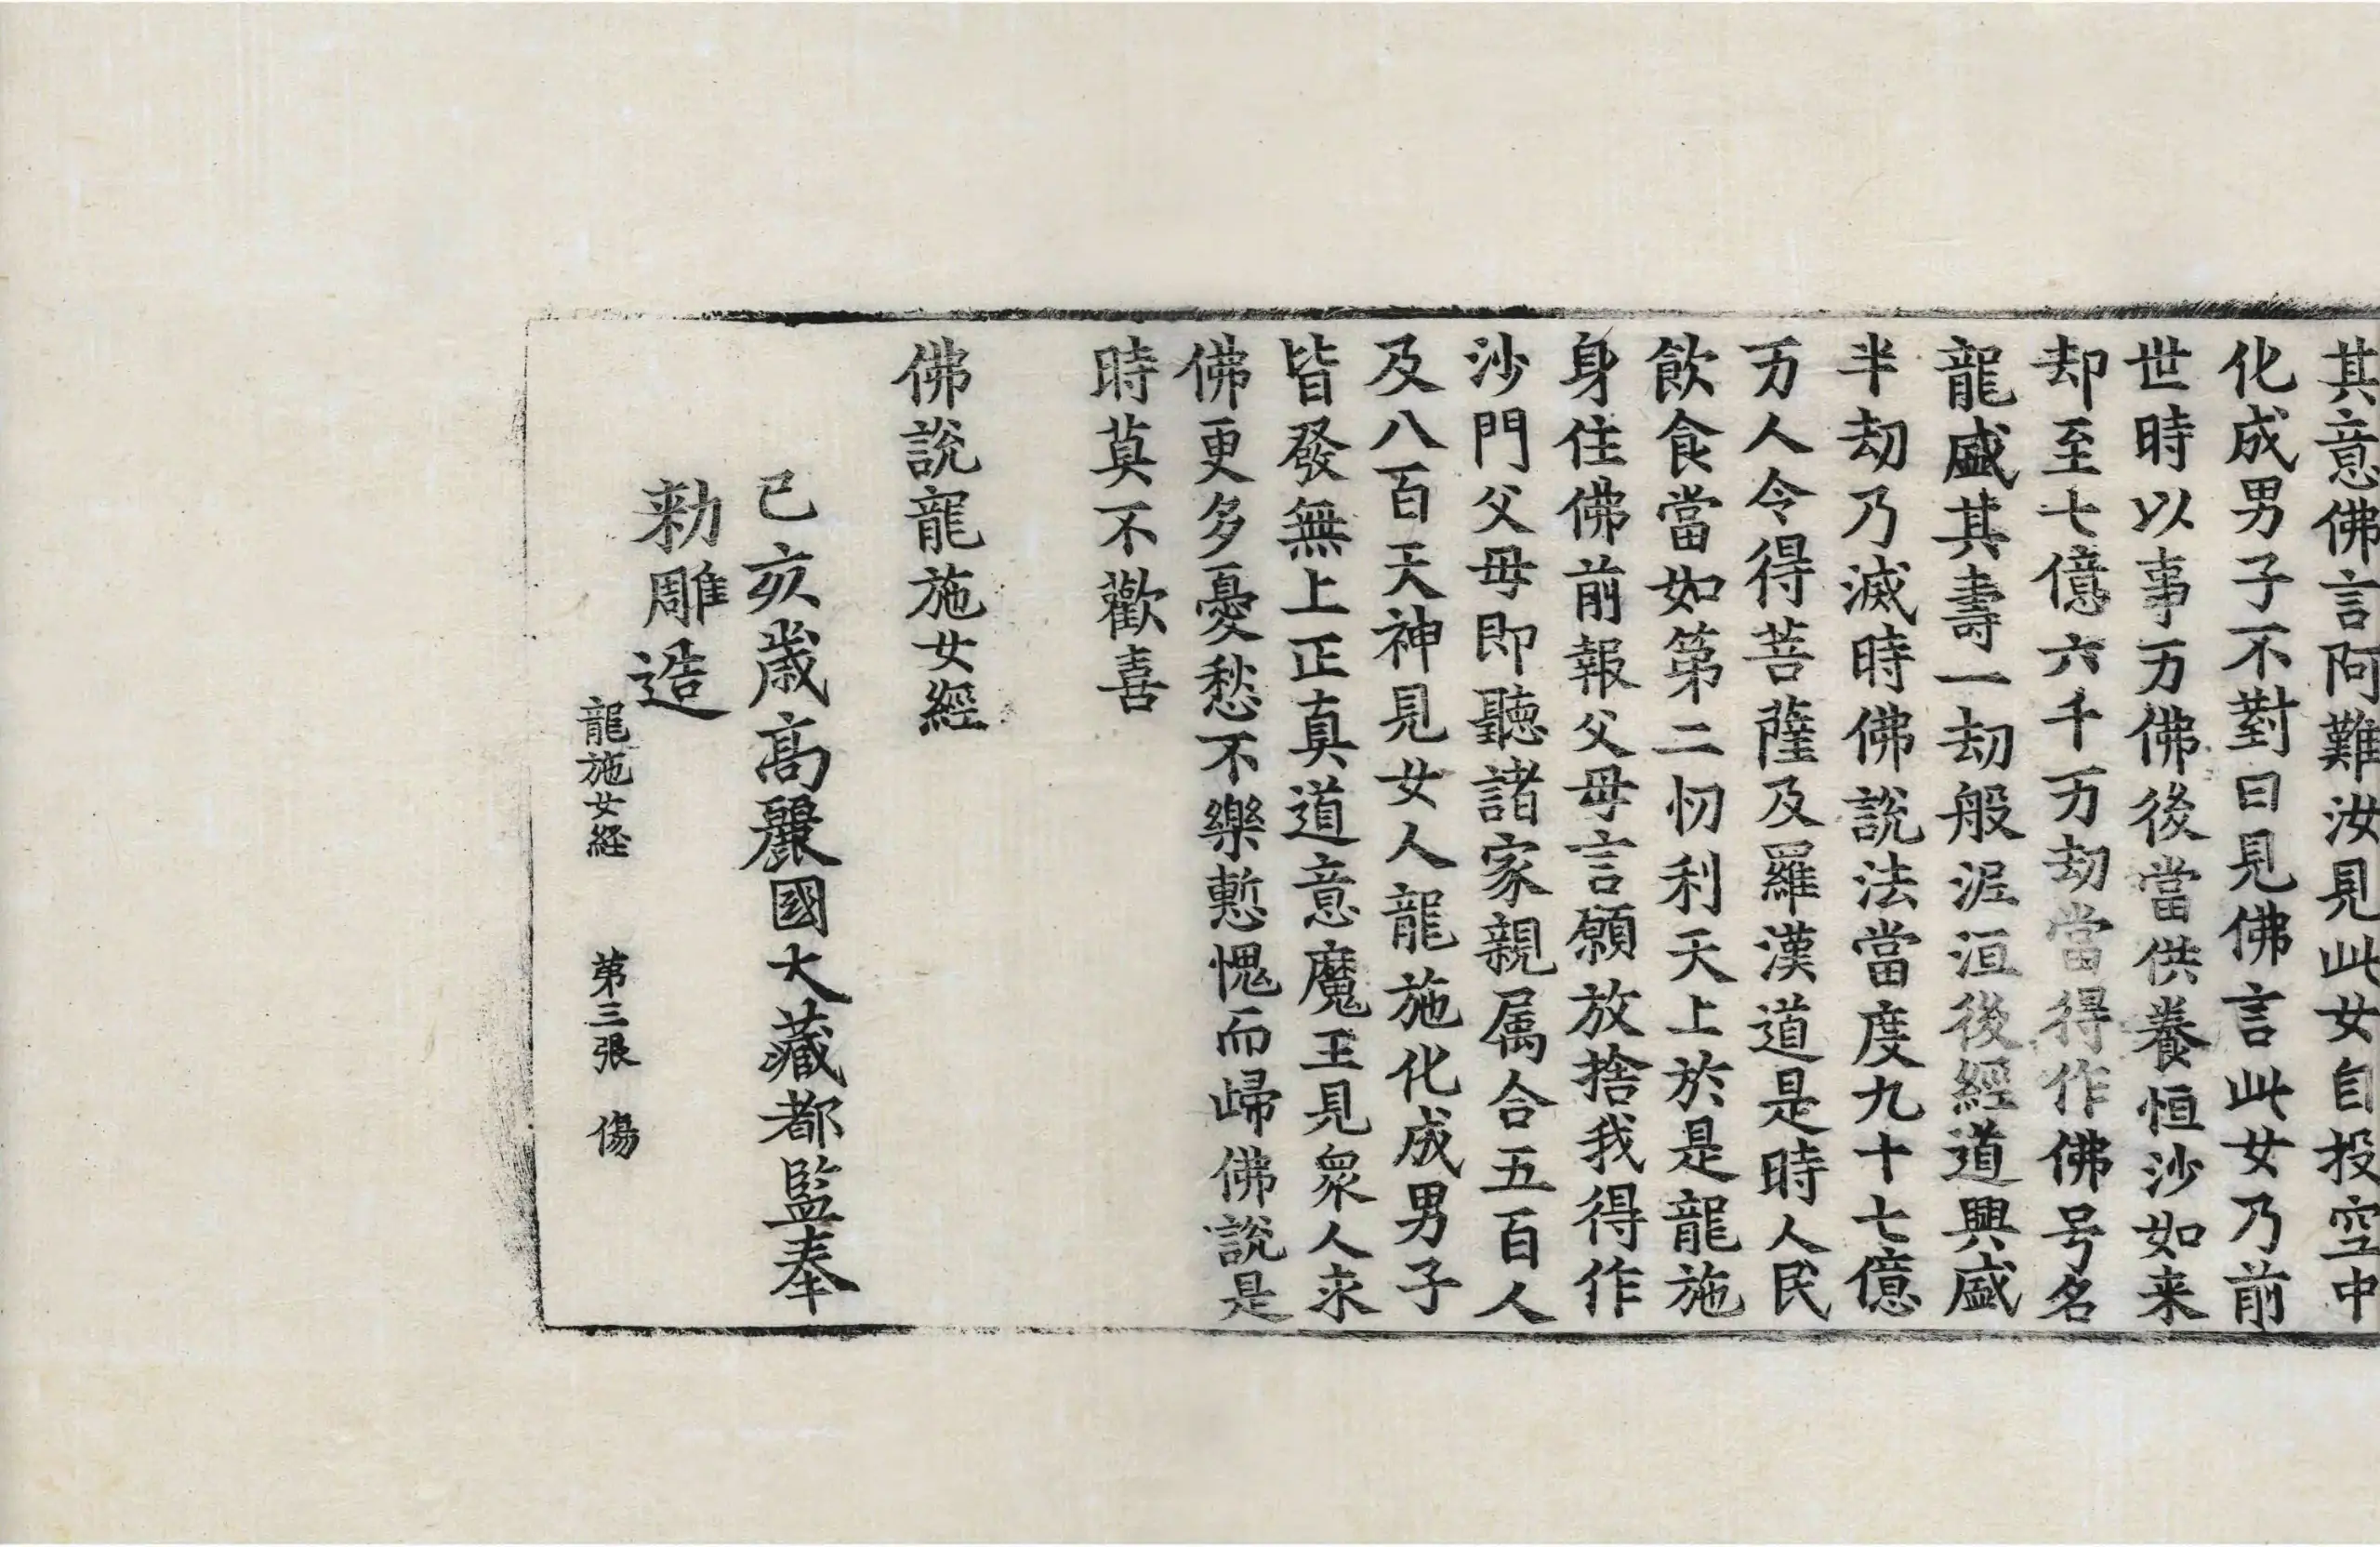 其意佛言阿難汝見此女自投空中
化成男子不對曰見佛言此女乃前
世時以事万佛後當供養恒沙如来
却至七億六千万劫當得作佛号名
龍盛其壽一劫般泥洹後經道興盛
半劫乃滅時佛說法當度九十七億
万人令得菩薩及羅漢道是時人民
飲食當如第二忉利天上於是龍施
身住佛前報父母言願放捨我得作
沙門父母即聽諸家親属合五百人
及八百天神見女人龍施化成男子
皆發無上正真道意魔王見眾人求
佛更多憂愁不樂慙愧而歸佛說是
時莫不歡喜
佛說龍施女經
己亥歲高麗國大藏都監奉
勑雕造
龍施女経 第三張 傷